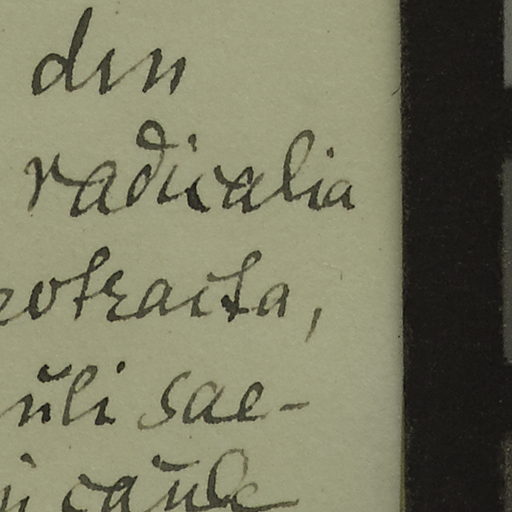 din
radicalia
rotracta,
ŭli sae-
caŭle